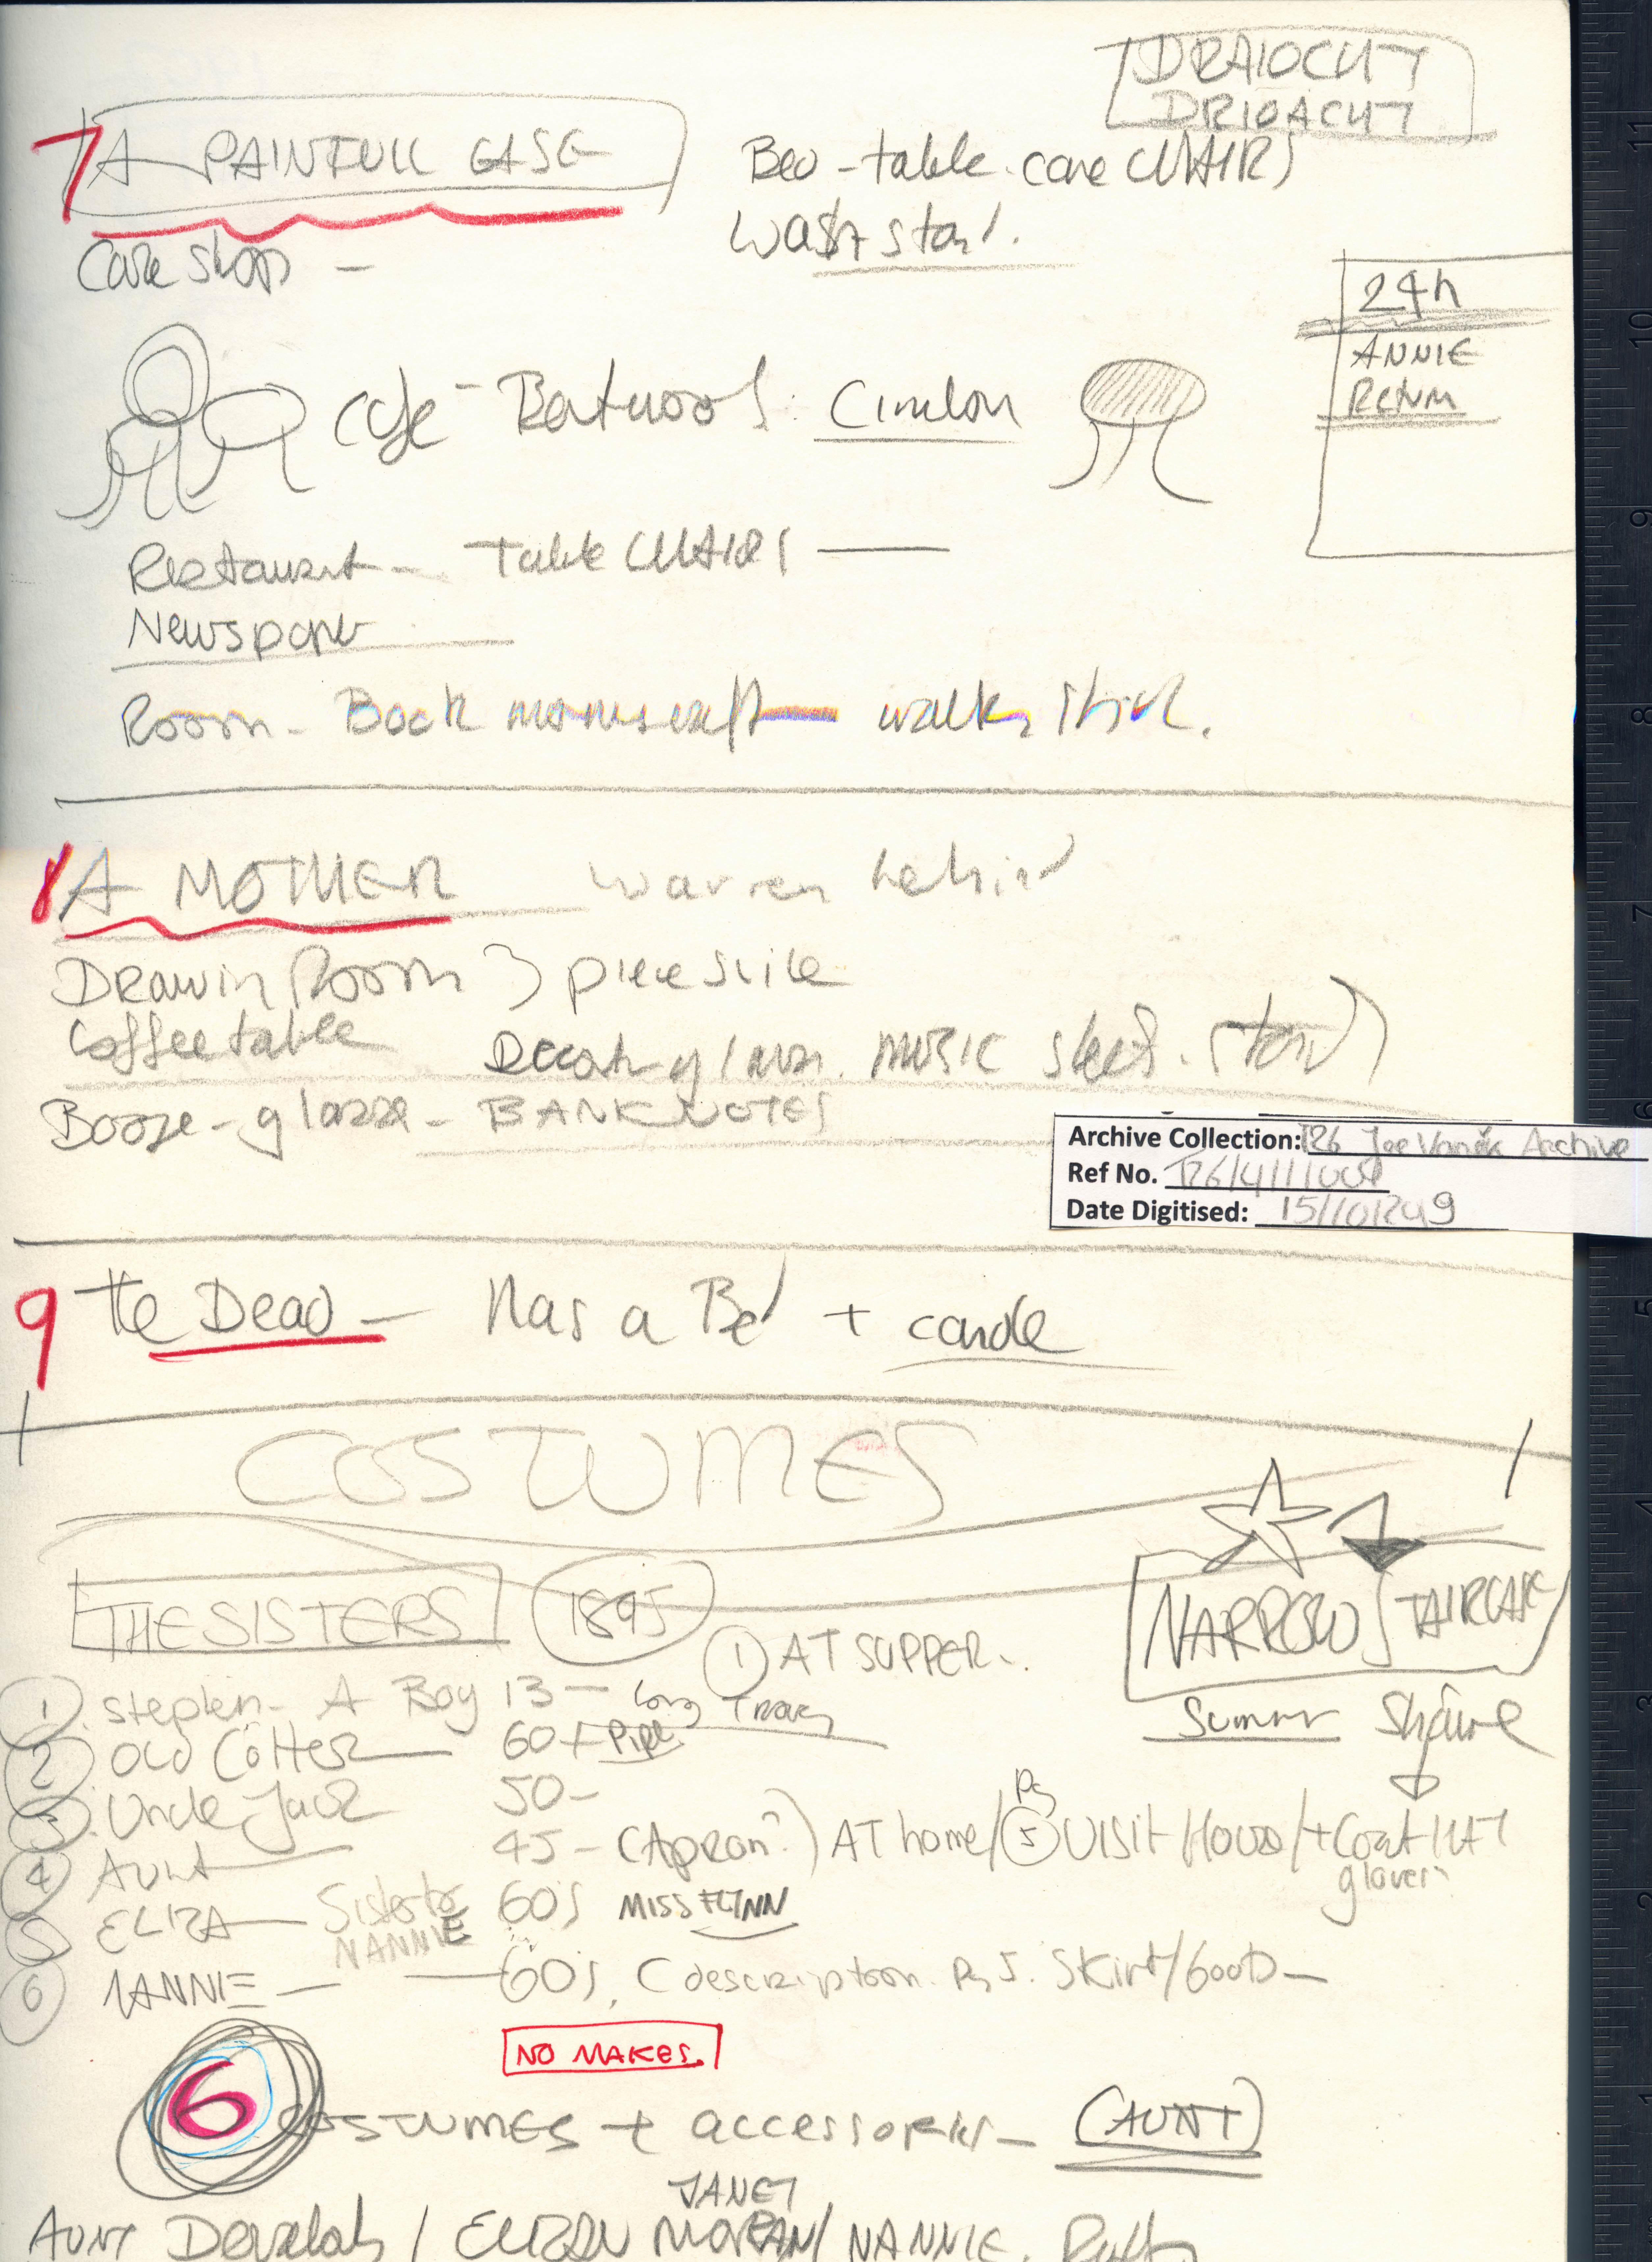 DRAIOCHT
DRIOACHT
7 A PAINFULL CASE
Bed - table. cane CHAIRS
Wash stand.
Cake shop -
24h
ANNIE
RETURN
Cafe - Bentwood:
Restaurant - Table CHAIRS
Newspaper
Room - Book manuscript walking stick.
8 A MOTHER Warren behind
Drawin Room 3 piece suite
Coffee table MUSIC sheets. Stand
Booze - glasses - BANK NOTES
Archive Collection: T26 Joe Vaněk Archive
Ref No.
Date Digitised: 15/10/2019
9 The Dead - Has a Bed + candle
COSTUMES
THE SISTERS 1895
NARROW STAIRCASE
① AT SUPPER.
① Stephen - A Boy 13 - Long
② OLD COTTER 60 + Pipe
Summer
③ Uncle Jack 50 -
④ AUNT 45 - (Apron?) AT home / Pg ⑤ VISIT House / + Coat HAT
gloves
⑤ ELIZA Sister to NANNIE 60s MISS FLYNN
⑥ NANNIE - 60s, (description. Pg 5. Skirt/boots -
NO MAKES.
6 COSTUMES + accessories - (AUNT)
JANET
AUNT / MORAN / NANNIE.